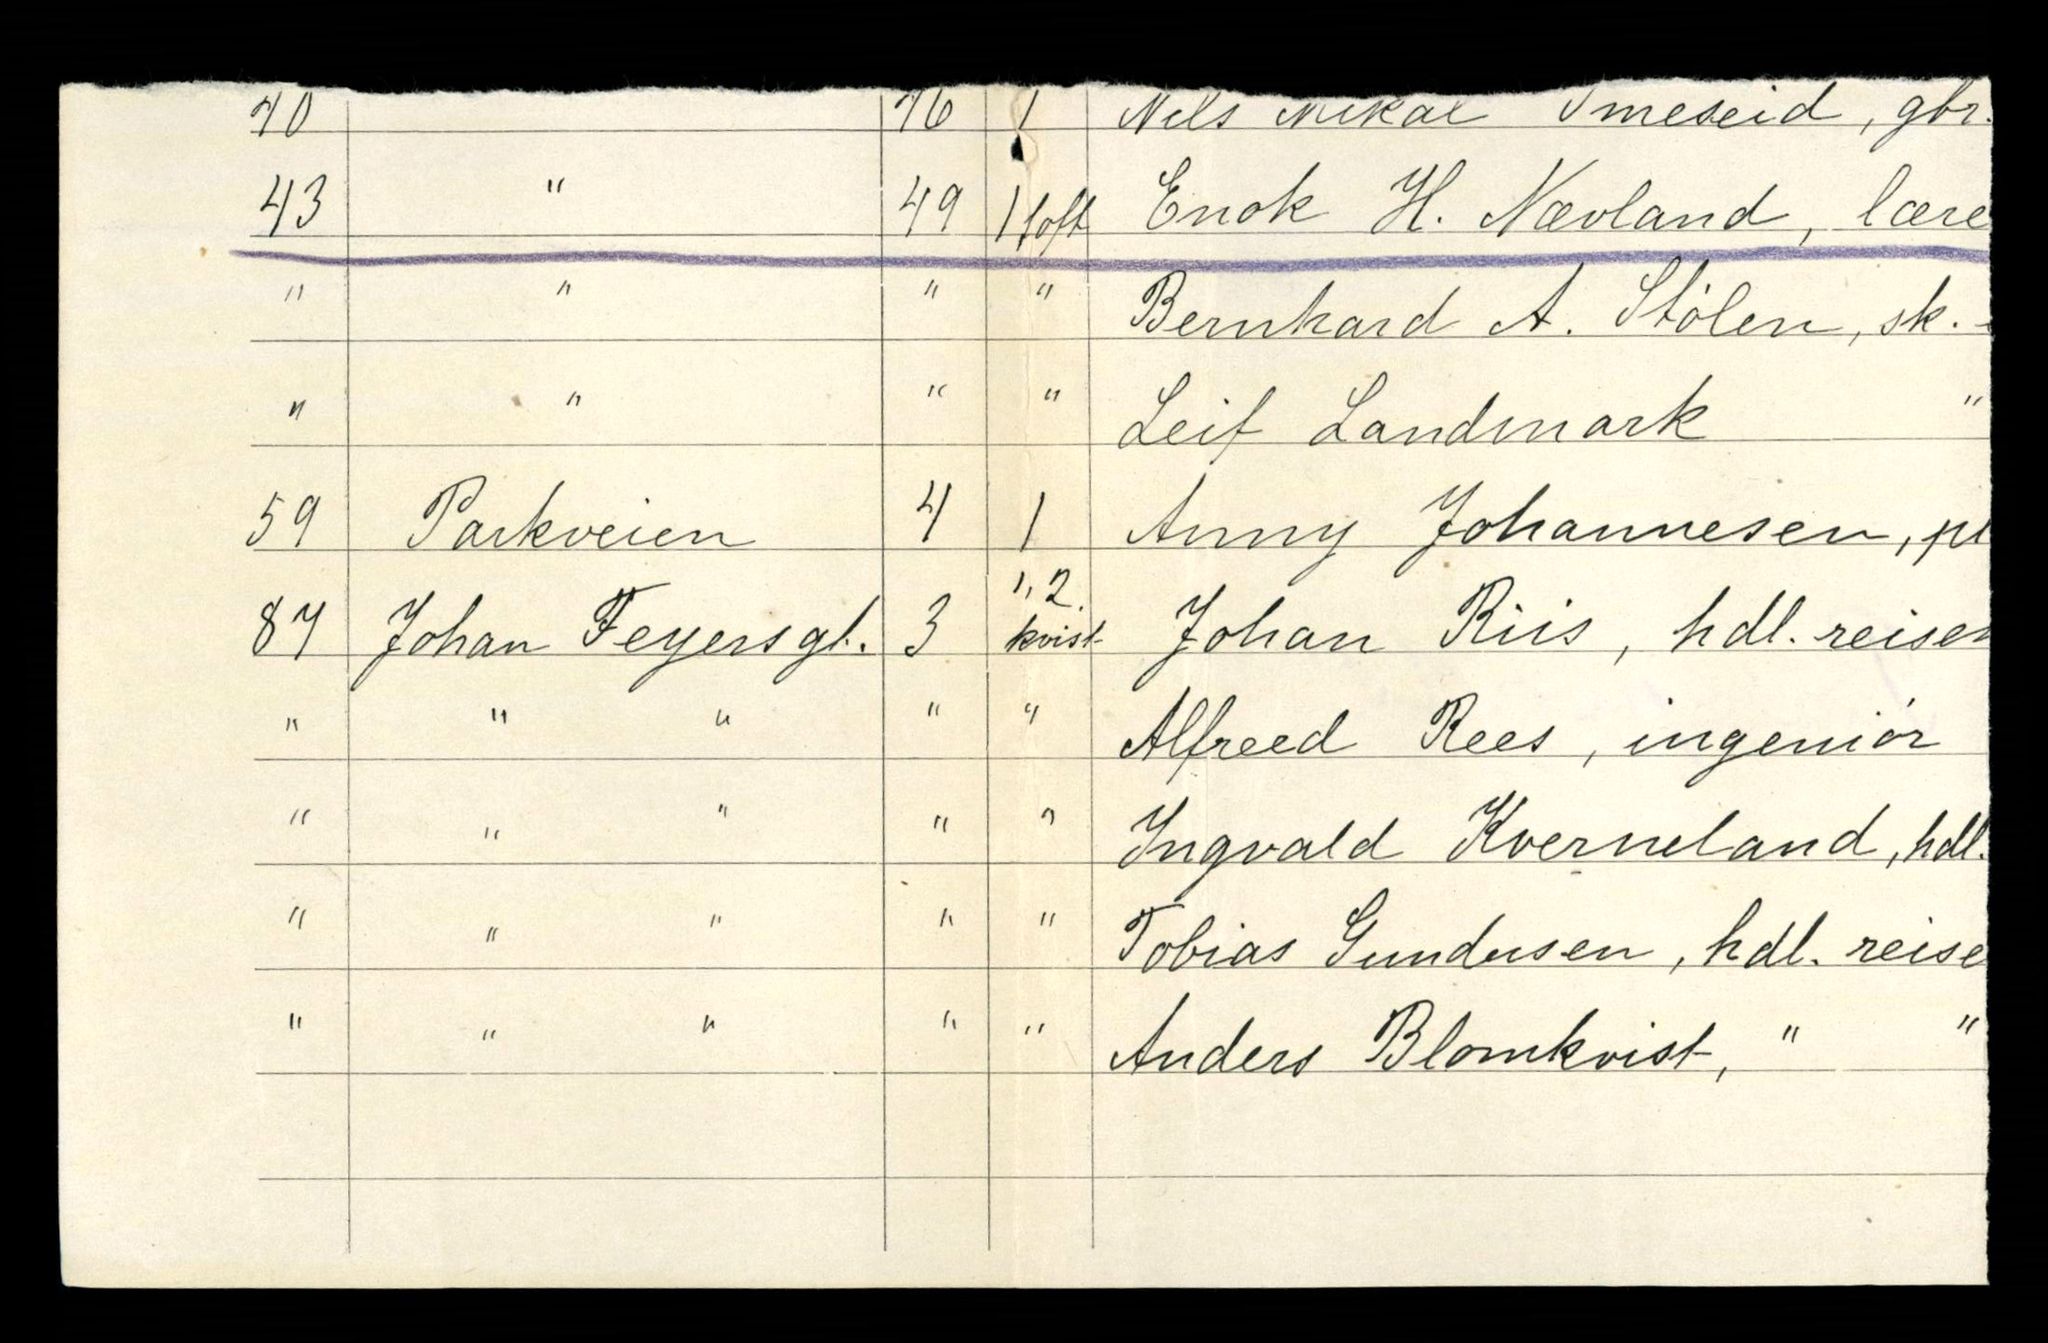 40 46 1 Nels Mikal Imeseid, gbr.
43 " 49 1 loft Enok H. Nævland, lære
" " " " Bernhard A. Stölen, sk.
" " " " Leif Landmark "
59 Parkveien 4 1 Anny Johannesen, pl
87 Johan Feyersgt. 3 1, 2. kvist Johan Riis, hdl. reisen
" " " " " Alfreed Rees, ingeniör
" " " " " Ingvald Kverneland, hdl.
" " " " " Tobias Gundersen, hdl. reise
" " " " " Anders Blomkvist, " "